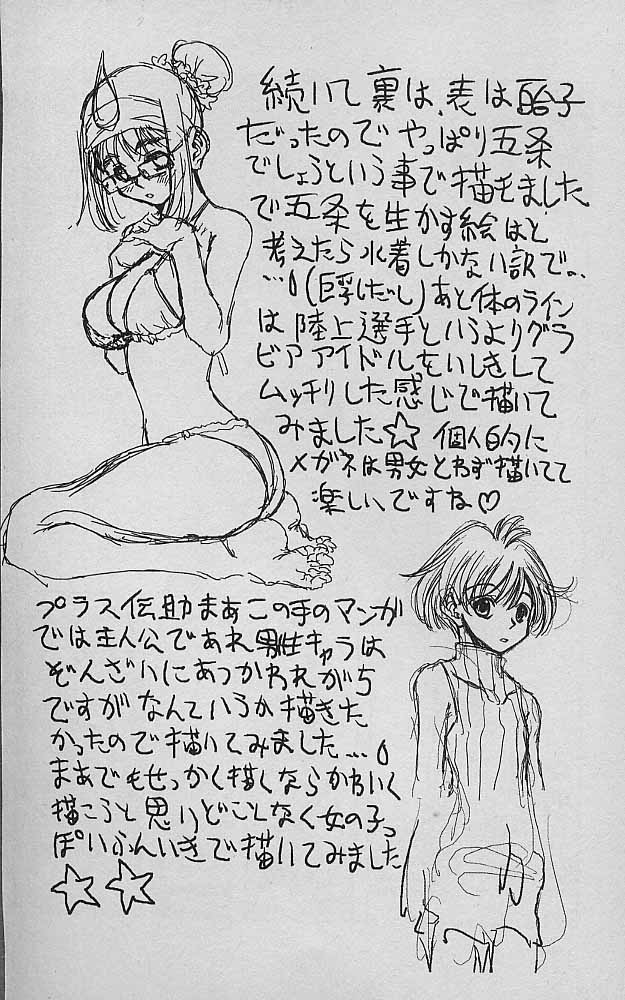 続いて裏は、表は飴子
だったのでやっぱり五条
でしょうという事で描きました
で五条を生かす絵はと
考えたら水着しかない訳で…
…(巨乳だし)あと体のライン
は陸上選手というよりグラ
ビアアイドルをいしきして
ムッチリした感じで描いて
みました☆ 個人的に
メガネは男女とわず描いてて
楽しいですね♡
プラス伝助まあこの手のマンガ
では主人公であれ男性キャラは
ぞんざいにあつかわれがち
ですがなんていうか描きた
かったので描いてみました…
まあでもせっかく描くならかわいく
描こうと思いどことなく女の子っ
ぽいふんいきで描いてみました
☆☆